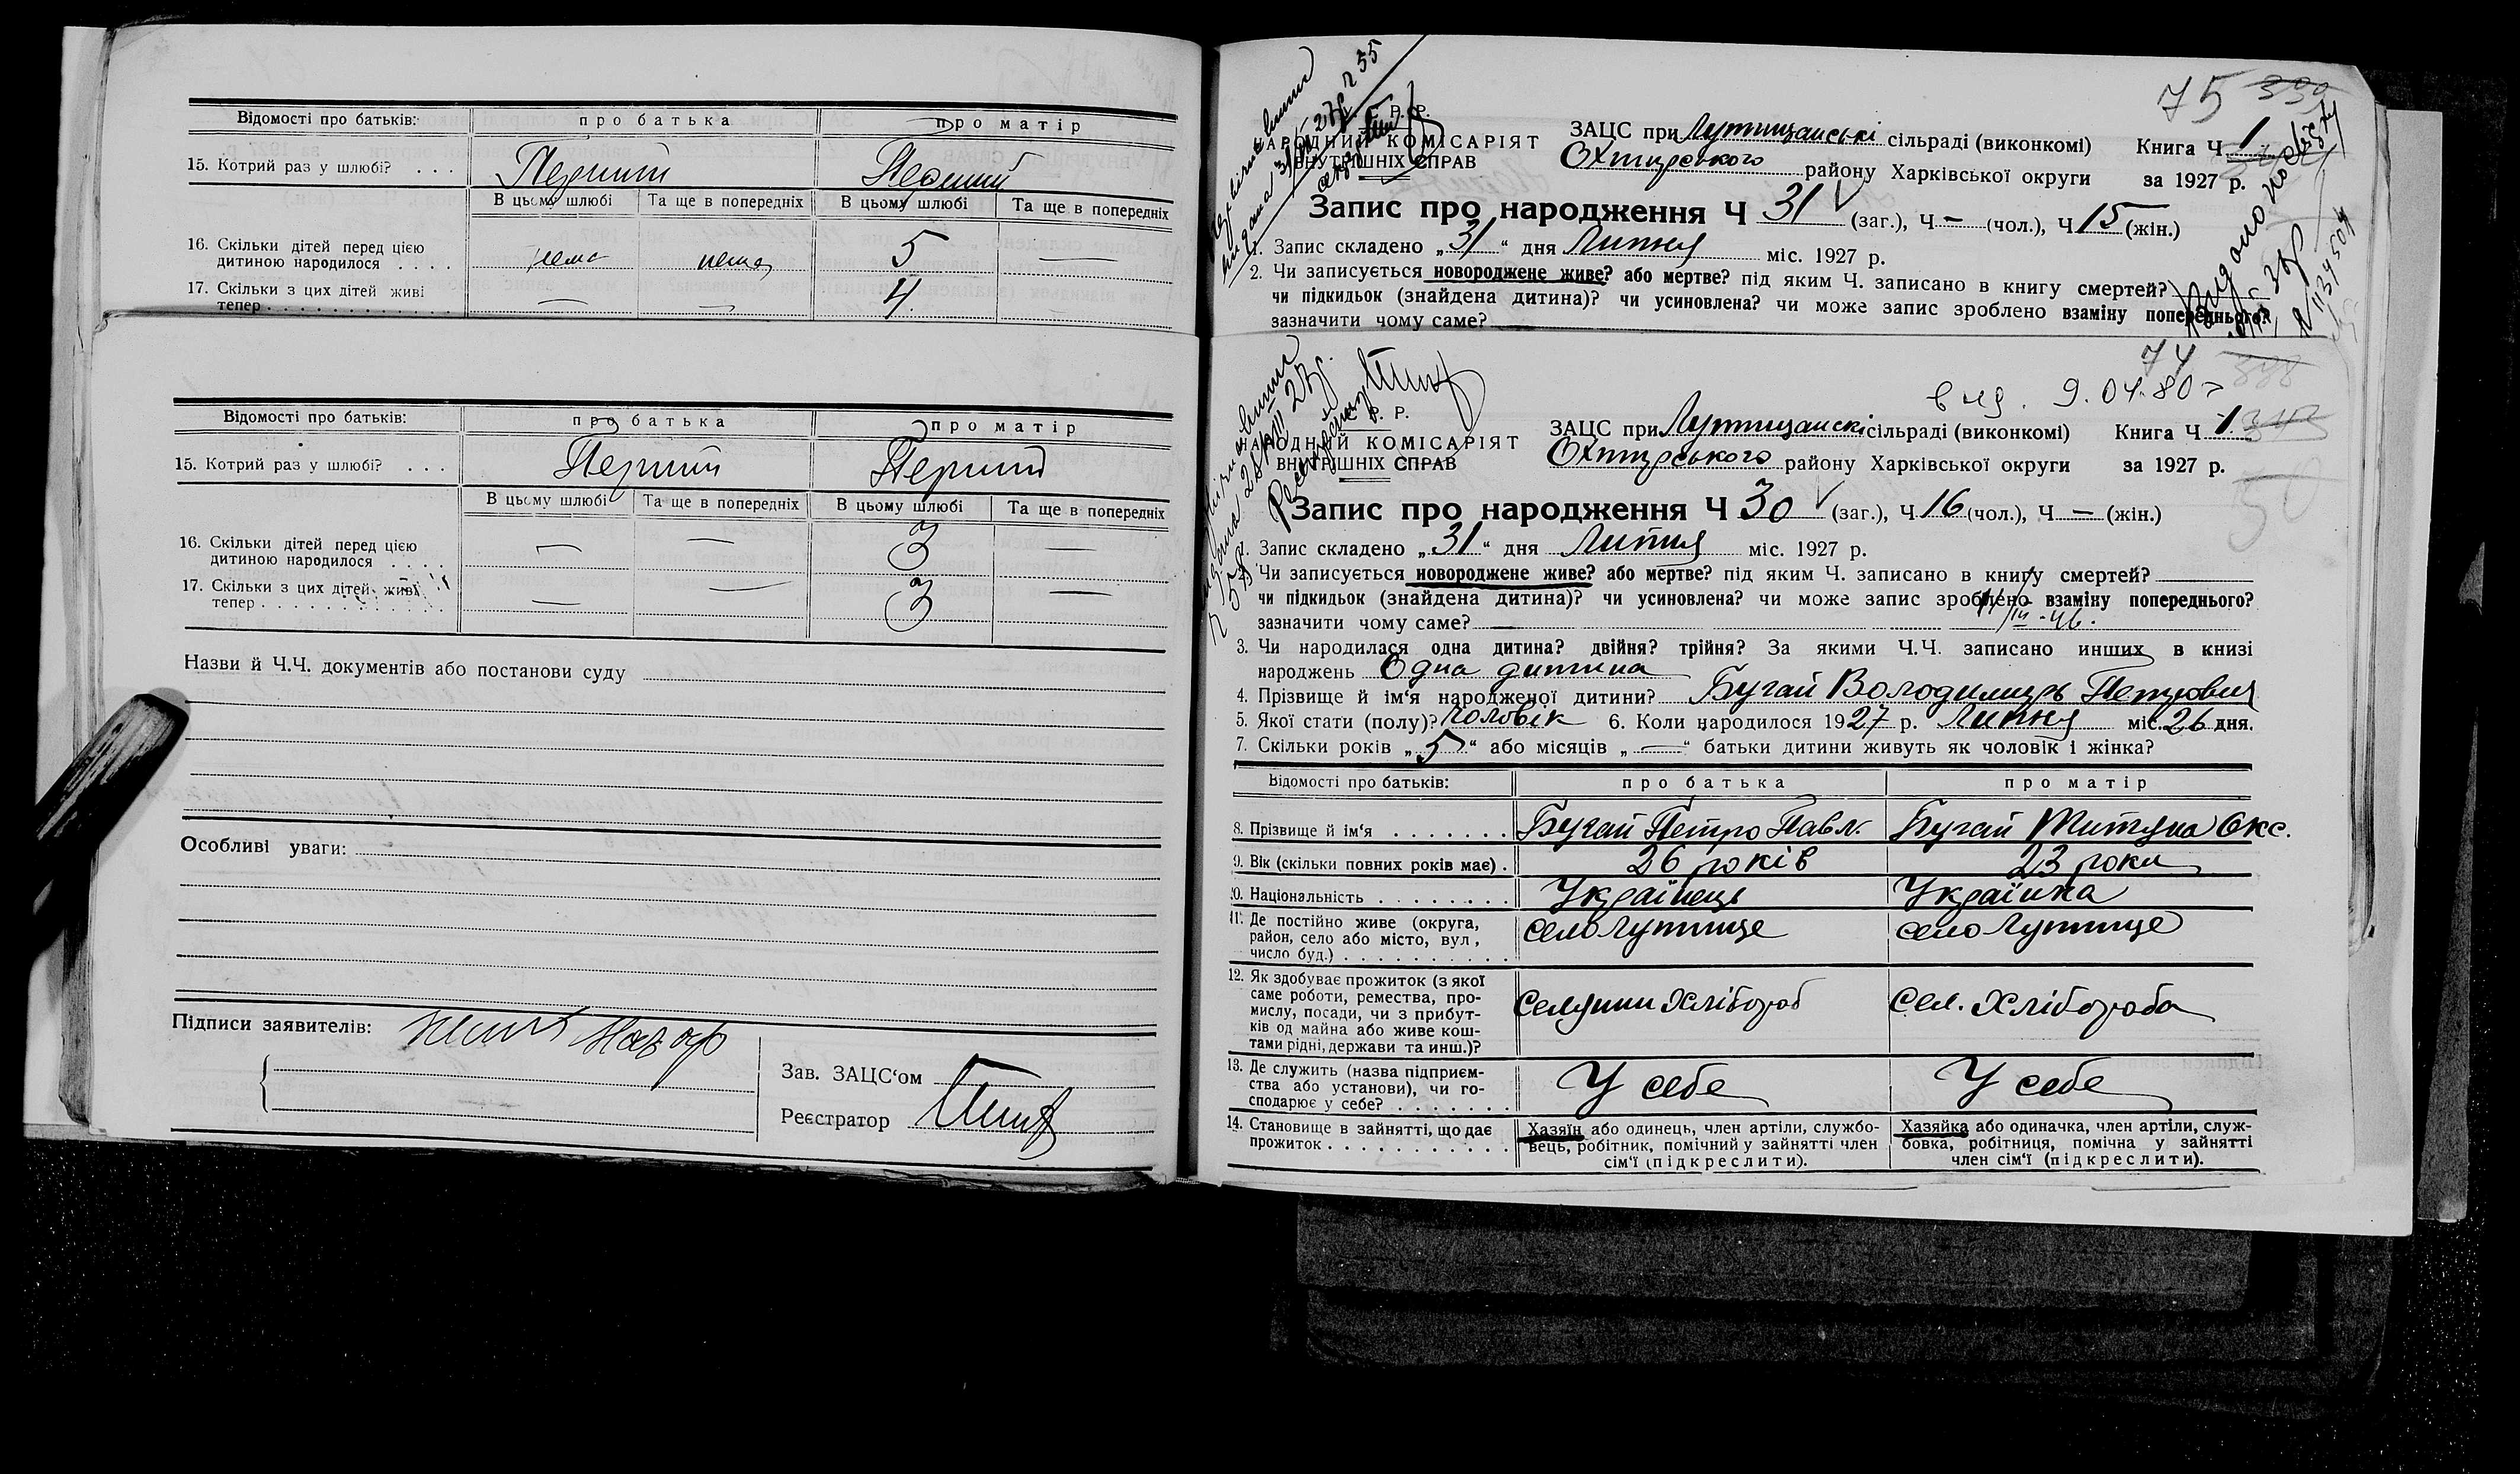 Відомості про батьків: про батька про матір
15. Котрий раз у шлюбі? . . . Перший Перший
В цьому шлюбі Та ще в попередніх В цьому шлюбі Та ще в попередніх
16. Скільки дітей перед цією
дитиною народилося . . . . нема нема 5 —
17. Скільки з цих дітей живі
тепер . . . . . . . . . . . . — — 4.
Відомості про батьків: про батька про матір
15. Котрий раз у шлюбі? . . . Перший Перший
В цьому шлюбі Та ще в попередніх В цьому шлюбі Та ще в попередніх
16. Скільки дітей перед цією
дитиною народилося . . . . — — 3 —
17. Скільки з цих дітей живі
тепер . . . . . . . . . . . . — — 3 —
Назви й Ч.Ч. документів або постанови суду
Особливі уваги:
Підписи заявителів:
Зав. ЗАЦС‘ом
Реєстратор
75 339
Р. Р.
НАРОДНИЙ КОМІСАРІЯТ
ВНУТРІШНІХ СПРАВ
ЗАЦС при Лутищанські сільраді (виконкомі) Книга Ч 1
Охтирського району Харківської округи за 1927 р.
Запис про народження Ч 31 (заг.), Ч — (чол.), Ч 15 (жін.)
1. Запис складено „31“ дня Липня міс. 1927 р.
2. Чи записується новороджене живе? або мертве? під яким Ч. записано в книгу смертей?
чи підкидьок (знайдена дитина)? чи усиновлена? чи може запис зроблено взаміну попереднього?
зазначити чому саме?
74 338
вид. 9.04.80
Р. Р.
НАРОДНИЙ КОМІСАРІЯТ
ВНУТРІШНІХ СПРАВ
ЗАЦС при Лутищанскі сільраді (виконкомі) Книга Ч 1.
Охтирського району Харківської округи за 1927 р.
50
Запис про народження Ч 30 (заг.), Ч 16 (чол.), Ч — (жін.)
1. Запис складено „31“ дня Липня міс. 1927 р.
2. Чи записується новороджене живе? або мертве? під яким Ч. записано в книгу смертей?
чи підкидьок (знайдена дитина)? чи усиновлена? чи може запис зроблено взаміну попереднього?
зазначити чому саме? —
3. Чи народилася одна дитина? двійня? трійня? За якими Ч.Ч. записано инших в книзі
народжень Одна дитина
4. Прізвище й ім‘я народженої дитини? Бугай Володимирь Петрович
5. Якої стати (полу)? чоловік 6. Коли народилося 1927 р. Липня міс. 26 дня.
7. Скільки років „5“ або місяців „—“ батьки дитини живуть як чоловік і жінка?
Відомості про батьків: про батька про матір
8. Прізвище й ім‘я . . . . . . . Бугай Петро Павл. Бугай Митяна Окс.
9. Вік (скільки повних років має) . 26 років 23 роки
10. Національність . . . . . . . . Українець Українка
11. Де постійно живе (округа,
район, село або місто, вул,
число буд.) . . . . . . . . . . село Лутище село Лутище
12. Як здобуває прожиток (з якої
саме роботи, ремества, про-
мислу, посади, чи з прибут-
ків од майна або живе кош-
тами рідні, держави та инш.)? Селянин Хлібороб Сел. Хлібороба
13. Де служить (назва підприєм-
ства або установи), чи го-
сподарює у себе? . . . . . . . У себе У себе
14. Становище в зайнятті, що дає
прожиток . . . . . . . . . . .
Хазяїн або одинець, член артіли, службо-
вець, робітник, помічний у зайнятті член
сім‘ї (підкреслити).
Хазяйка або одиначка, член артіли, служ-
бовка, робітниця, помічна у зайнятті
член сім‘ї (підкреслити).